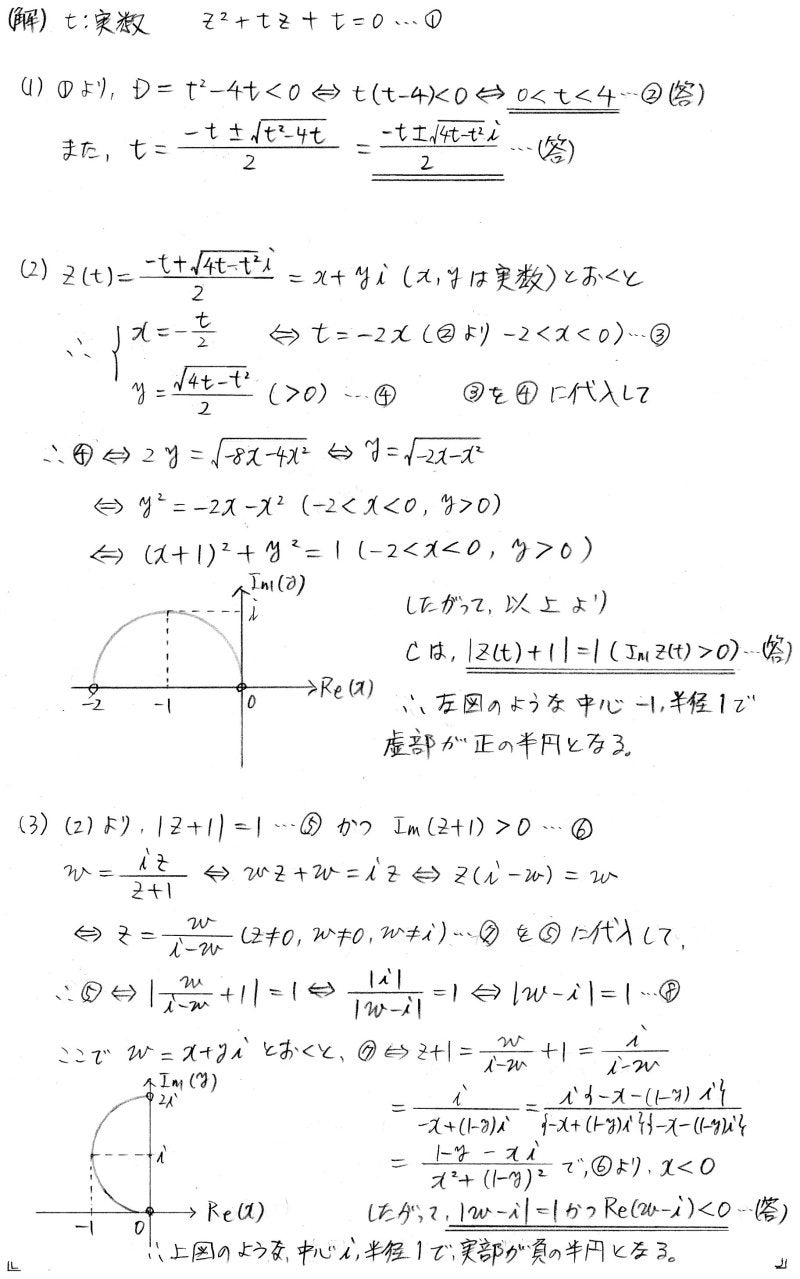 (解) t:実数 z²+tz+t=0…①
(1) ①より, D=t²-4t<0 ⇔ t(t-4)<0 ⇔ 0<t<4…②(答)
また, t=(-t±√(t²-4t))/2 = (-t±√(4t-t²)i)/2 …(答)
(2) z(t)=(-t+√(4t-t²)i)/2 = x+yi (x,yは実数)とおくと
∴ { x=-t/2 ⇔ t=-2x (②より -2<x<0)…③
y=√(4t-t²)/2 (>0) …④ ③を④に代入して
∴④⇔ 2y=√(-8x-4x²) ⇔ y=√(-2x-x²)
⇔ y²=-2x-x² (-2<x<0, y>0)
⇔ (x+1)²+y²=1 (-2<x<0, y>0)
Im(y)
i
-2 -1 0 Re(x)
したがって, 以上より
Cは, |z(t)+1|=1 (Im z(t)>0)…(答)
∴左図のような中心-1,半径1で
虚部が正の半円となる。
(3) (2)より, |z+1|=1…⑤ かつ Im(z+1)>0 …⑥
w=iz/(z+1) ⇔ wz+w=iz ⇔ z(i-w)=w
⇔ z=w/(i-w) (z≠0, w≠0, w≠i)…⑦ を⑤に代入して,
∴⑤⇔ |w/(i-w)+1|=1 ⇔ |i|/|w-i|=1 ⇔ |w-i|=1…⑧
ここで w=x+yi とおくと, ⑦⇔ z+1=w/(i-w)+1=i/(i-w)
=i/(-x+(1-y)i)=i{-x-(1-y)i}/({-x+(1-y)i}{-x-(1-y)i})
=(1-y-xi)/(x²+(1-y)²) で,⑥より, x<0
Im(y)
2i
i
-1 0 Re(x)
したがって, |w-i|=1かつRe(w-i)<0…(答)
∴上図のような,中心i,半径1で,実部が負の半円となる。